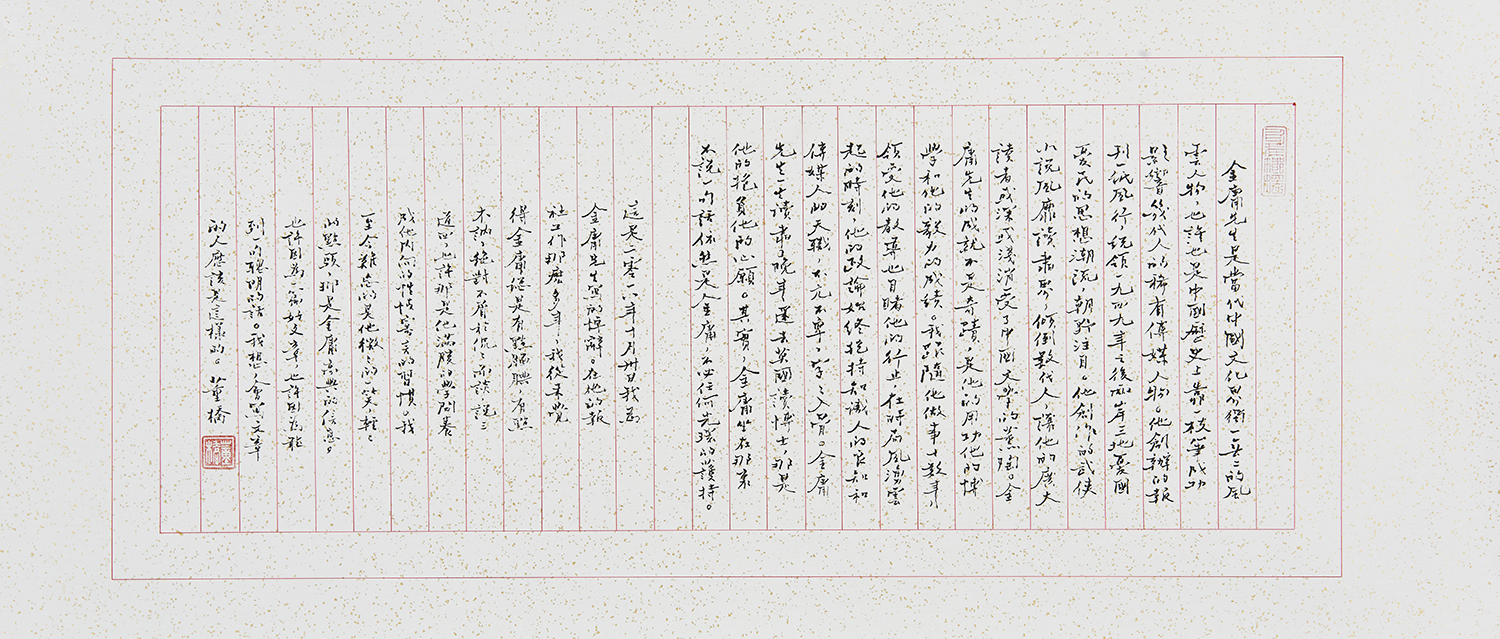 金庸先生是當代中國文化界獨一無二的風
雲人物，也許也是中國歷史上靠一枝筆成功
影響幾代人的稀有傳媒人物。他創辦的報
刊一紙風行，統領一九四九年之後兩岸三地憂國
憂民的思想潮流，朝野注目。他創作的武俠
小說風靡讀書界，傾倒數代人，讓他的廣大
讀者或深或淺消受了中國文學的薰陶。金
庸先生的成就不是奇蹟，是他的用功他的博
學和他的毅力的成績。我跟隨他做事十數年，
領受他的教導也目睹他的行止，在時局風湧雲
起的時刻，他的政論始終抱持知識人的良知和
傳媒人的天職，不亢不卑，字字入骨。金庸
先生一生讀書。晚年還去英國讀博士，那是
他的抱負他的心願。其實，金庸坐在那裏
不說一句話依然是金庸，不必任何光環的護持。
這是二零一八年十月卅日我為
金庸先生寫的悼辭。在他的報
社工作那麼多年，我從來覺
得金庸總是有點靦腆，有點
木訥，絕對不屑於侃侃而談說三
道四，也許那是他滿腹的學問養
成他內斂的性情寡言的習慣。我
至今難忘的是他微微的一笑，輕輕
的點頭，那是金庸古典的信息。
也許因為一篇好文章，也許因為聽
到一句聰明的話。我想，會寫文章
的人應該是這樣的。 董橋
董橋